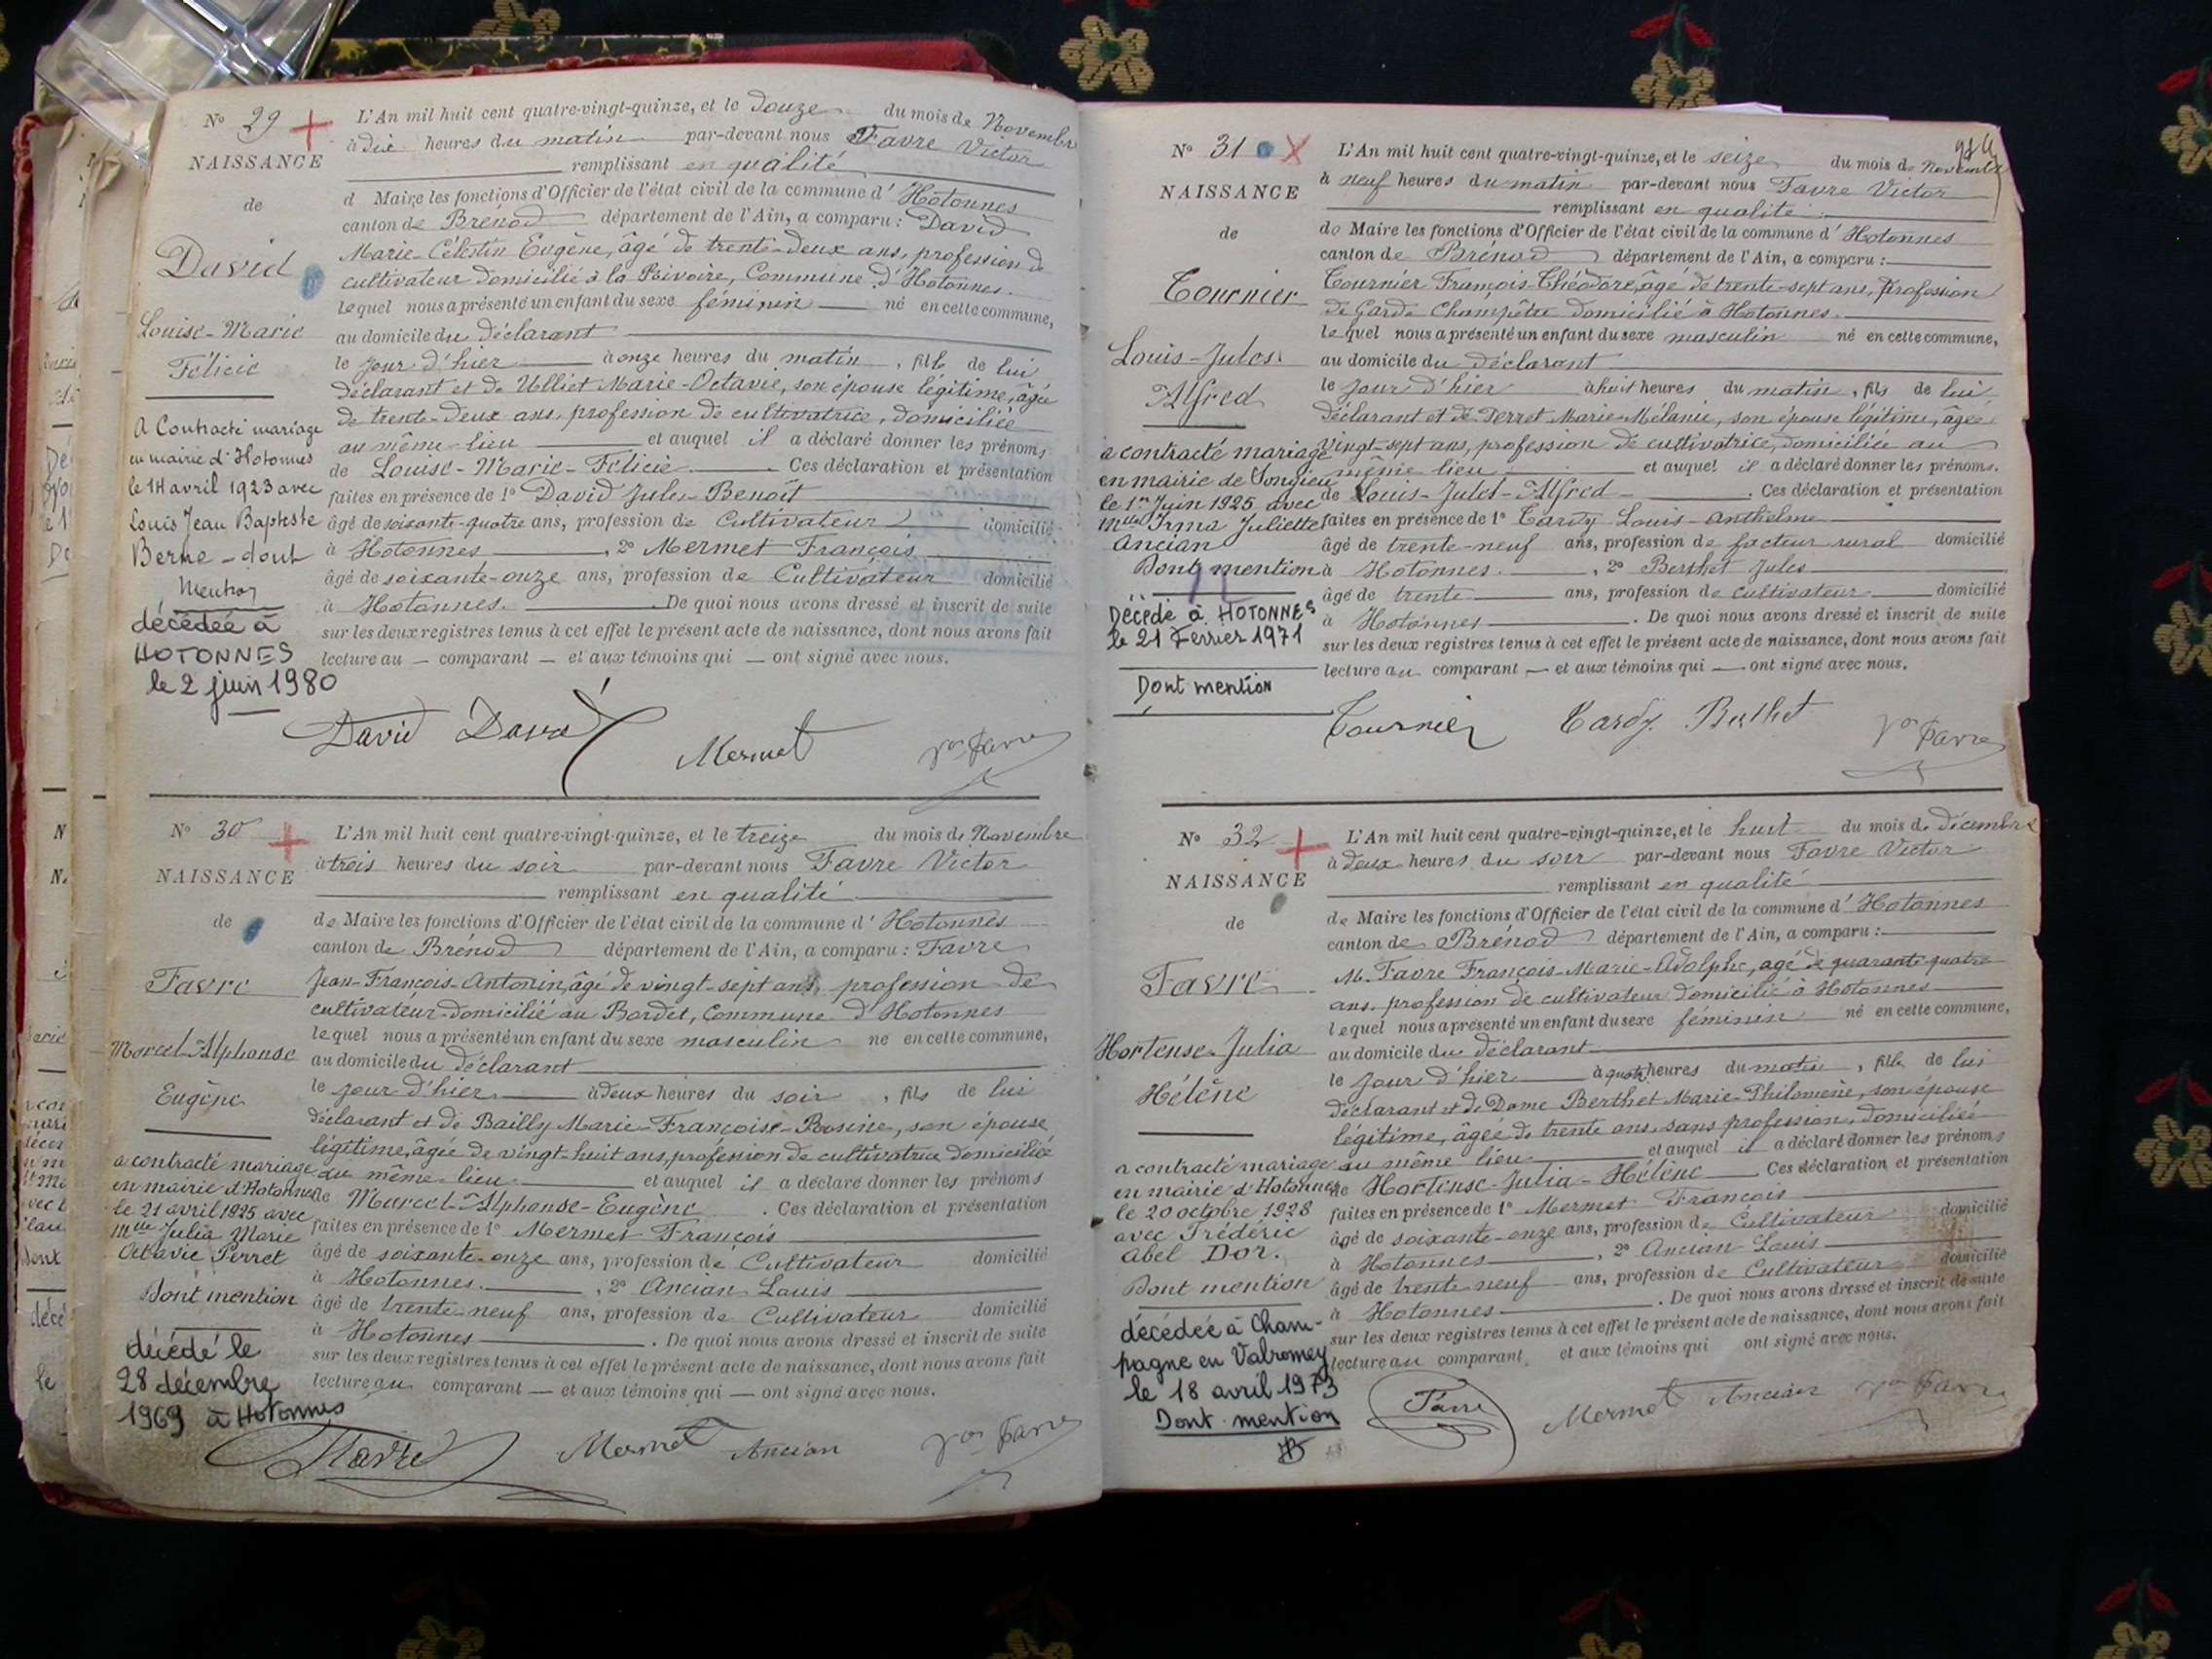 Nº 29
NAISSANCE
de
David
Louise-Marie
Félicie
A Contracté mariage
en mairie d'Hotonnes
le 14 avril 1923 avec
Louis Jean Baptiste
Berne - dont
Mention
décédée à
HOTONNES
le 2 juin 1980
L'An mil huit cent quatre-vingt-quinze, et le douze du mois de Novembre
à dix heures du matin par-devant nous Favre Victor
remplissant en qualité
d Maire les fonctions d'Officier de l'état civil de la commune d' Hotonnes
canton de Brénod département de l'Ain, a comparu : David
Marie-Célestin Eugène, âgé de trente-deux ans, profession de
cultivateur domicilié à la Rivoire, Commune d'Hotonnes.
lequel nous a présenté un enfant du sexe féminin né en cette commune,
au domicile du déclarant
le jour d'hier à onze heures du matin, fille de lui
déclarant et de Ulliet Marie-Octavie, son épouse légitime, âgée
de trente-deux ans, profession de cultivatrice, domiciliée
au même lieu et auquel il a déclaré donner les prénoms
de Louise-Marie-Félicie. Ces déclaration et présentation
faites en présence de 1º David Jules-Benoît
âgé de soixante-quatre ans, profession de Cultivateur domicilié
à Hotonnes, 2º Mermet François
âgé de soixante-onze ans, profession de Cultivateur domicilié
à Hotonnes. De quoi nous avons dressé et inscrit de suite
sur les deux registres tenus à cet effet le présent acte de naissance, dont nous avons fait
lecture au — comparant — et aux témoins qui — ont signé avec nous.
David David Mermet Vor Favre
Nº 30
NAISSANCE
de
Favre
Marcel-Alphonse
Eugène
a contracté mariage
en mairie d'Hotonnes
le 21 avril 1925 avec
Mlle Julia Marie
Octavie Perret
Dont mention
décédé le
28 décembre
1969 à Hotonnes
L'An mil huit cent quatre-vingt-quinze, et le treize du mois de Novembre
à trois heures du soir par-devant nous Favre Victor
remplissant en qualité
de Maire les fonctions d'Officier de l'état civil de la commune d' Hotonnes
canton de Brénod département de l'Ain, a comparu : Favre
Jean-François-Antonin, âgé de vingt-sept ans, profession de
cultivateur domicilié au Bordet, Commune d'Hotonnes
lequel nous a présenté un enfant du sexe masculin né en cette commune,
au domicile du déclarant
le jour d'hier à deux heures du soir, fils de lui
déclarant et de Bailly Marie-Françoise-Rosine, son épouse
légitime, âgée de vingt-huit ans, profession de cultivatrice domiciliée
au même lieu et auquel il a déclaré donner les prénoms
de Marcel-Alphonse-Eugène. Ces déclaration et présentation
faites en présence de 1º Mermet François
âgé de soixante-onze ans, profession de Cultivateur domicilié
à Hotonnes, 2º Ancian Louis
âgé de trente-neuf ans, profession de Cultivateur domicilié
à Hotonnes. De quoi nous avons dressé et inscrit de suite
sur les deux registres tenus à cet effet le présent acte de naissance, dont nous avons fait
lecture au comparant — et aux témoins qui — ont signé avec nous.
Favre Mermet Ancian Vor Favre
Nº 31
NAISSANCE
de
Tournier
Louis-Jules
Alfred
a contracté mariage
en mairie de Songieu
le 1er Juin 1925 avec
Mlle Irma Juliette
Ancian
Dont mention
Décédé à HOTONNES
le 21 Février 1971
Dont mention
L'An mil huit cent quatre-vingt-quinze, et le seize du mois de Novembre
à neuf heures du matin par-devant nous Favre Victor
remplissant en qualité
de Maire les fonctions d'Officier de l'état civil de la commune d' Hotonnes
canton de Brénod département de l'Ain, a comparu :
Tournier François-Théodore, âgé de trente-sept ans, Profession
de Garde Champêtre domicilié à Hotonnes.
lequel nous a présenté un enfant du sexe masculin né en cette commune,
au domicile du déclarant
le jour d'hier à huit heures du matin, fils de lui
déclarant et de Perret Marie-Mélanie, son épouse légitime, âgée
vingt-sept ans, profession de cultivatrice, domiciliée au
même lieu et auquel il a déclaré donner les prénoms.
de Louis-Jules-Alfred. Ces déclaration et présentation
faites en présence de 1º Tardy Louis-Anthelme
âgé de trente-neuf ans, profession de facteur rural domicilié
à Hotonnes, 2º Berthet Jules
âgé de trente ans, profession de cultivateur domicilié
à Hotonnes. De quoi nous avons dressé et inscrit de suite
sur les deux registres tenus à cet effet le présent acte de naissance, dont nous avons fait
lecture au comparant — et aux témoins qui — ont signé avec nous.
Tournier Tardy Berthet Vor Favre
Nº 32
NAISSANCE
de
Favre
Hortense-Julia
Hélène
a contracté mariage
en mairie d'Hotonnes
le 20 octobre 1928
avec Frédéric
Abel Dor.
Dont mention
décédée à Cham-
pagne en Valromey
le 18 avril 1973
Dont mention
L'An mil huit cent quatre-vingt-quinze, et le huit du mois de décembre
à deux heures du soir par-devant nous Favre Victor
remplissant en qualité
de Maire les fonctions d'Officier de l'état civil de la commune d' Hotonnes
canton de Brénod département de l'Ain, a comparu :
M. Favre François-Marie-Adolphe, âgé de quarante quatre
ans, profession de cultivateur domicilié à Hotonnes
lequel nous a présenté un enfant du sexe féminin né en cette commune,
au domicile du déclarant
le jour d'hier à quatre heures du matin, fille de lui
déclarant et de Dame Berthet Marie-Philomène, son épouse
légitime, âgée de trente ans, sans profession, domiciliée
au même lieu et auquel il a déclaré donner les prénoms
de Hortense-Julia-Hélène Ces déclaration et présentation
faites en présence de 1º Mermet François
âgé de soixante-onze ans, profession de Cultivateur domicilié
à Hotonnes, 2º Ancian Louis
âgé de trente neuf ans, profession de Cultivateur domicilié
à Hotonnes. De quoi nous avons dressé et inscrit de suite
sur les deux registres tenus à cet effet le présent acte de naissance, dont nous avons fait
lecture au comparant, et aux témoins qui ont signé avec nous.
Favre Mermet Ancian Vor Favre